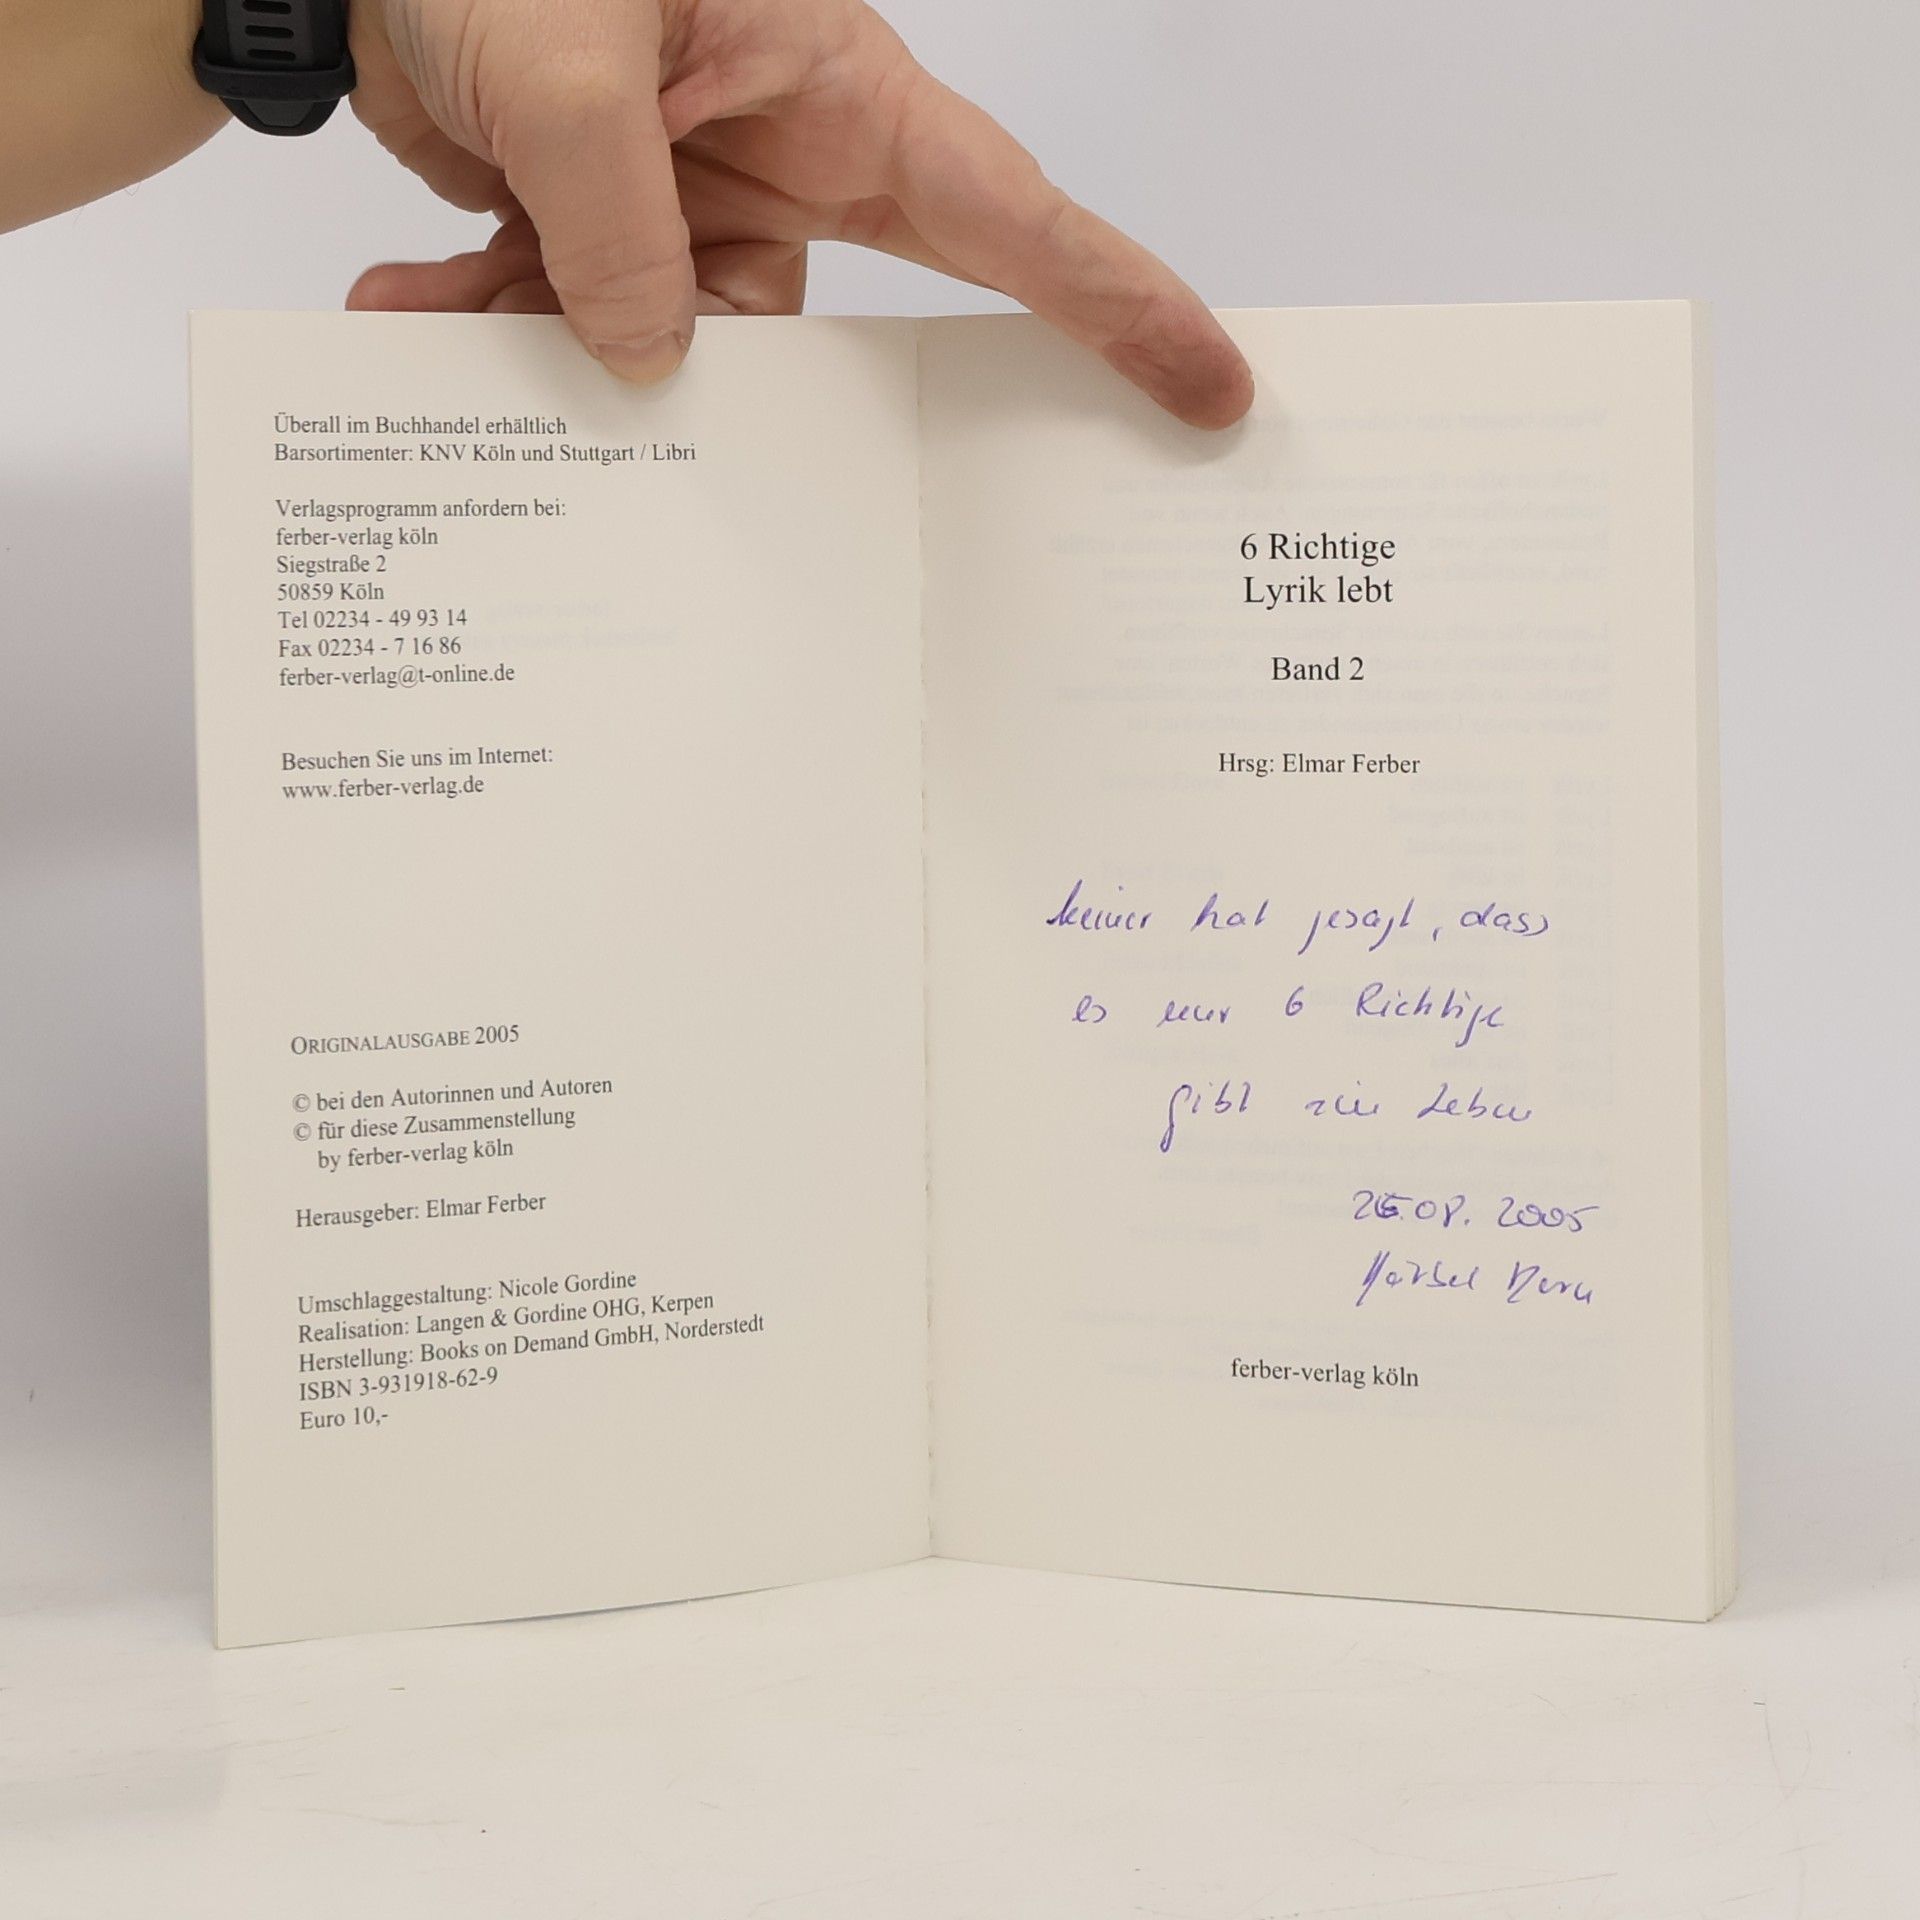 Überall im Buchhandel erhältlich
Barsortimenter: KNV Köln und Stuttgart / Libri
Verlagsprogramm anfordern bei:
ferber-verlag köln
Siegstraße 2
50859 Köln
Tel 02234 - 49 93 14
Fax 02234 - 7 16 86
ferber-verlag@t-online.de
Besuchen Sie uns im Internet:
www.ferber-verlag.de
ORIGINALAUSGABE 2005
© bei den Autorinnen und Autoren
© für diese Zusammenstellung
by ferber-verlag köln
Herausgeber: Elmar Ferber
Umschlaggestaltung: Nicole Gordine
Realisation: Langen & Gordine OHG, Kerpen
Herstellung: Books on Demand GmbH, Norderstedt
ISBN 3-931918-62-9
Euro 10,-
6 Richtige
Lyrik lebt
Band 2
Hrsg: Elmar Ferber
keiner hat gesagt, dass
es nur 6 Richtige
gibt im Leben
26.08. 2005
ferber-verlag köln